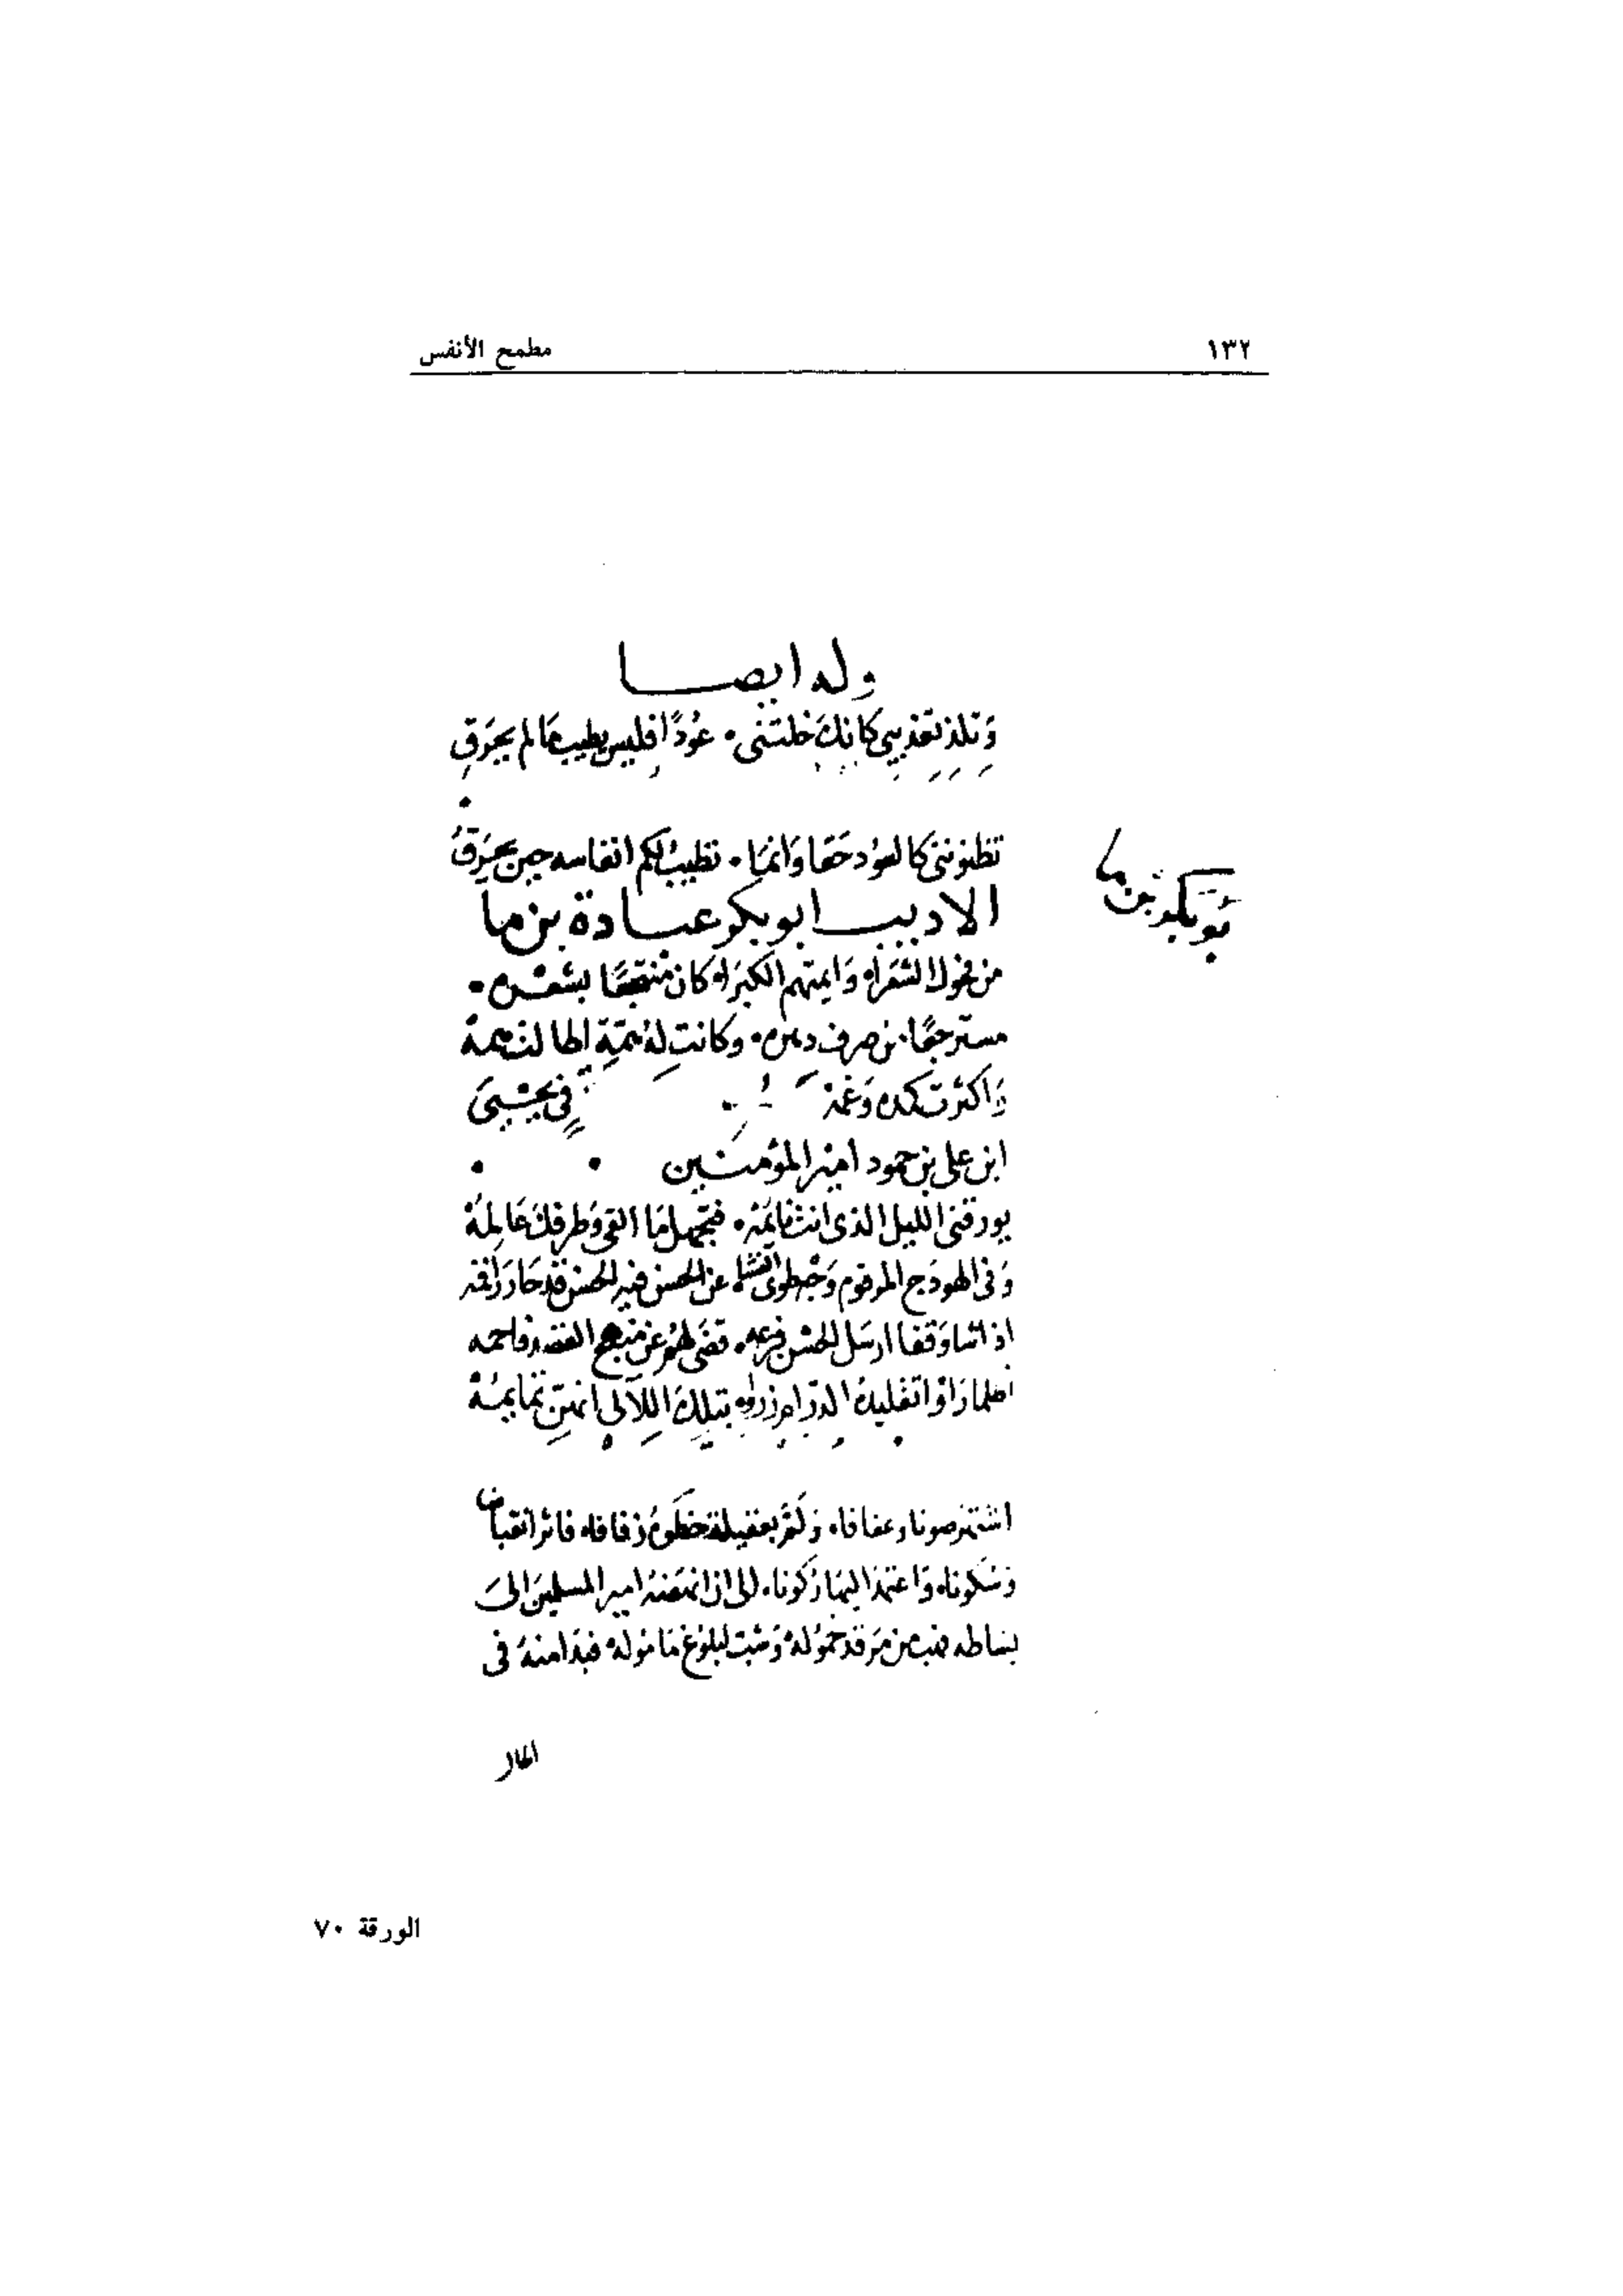 ١٣٢
مطمح الأنفس
وله ايضا
وَتلذ تعذيبي كانكَ خلتني • عُودًا فليس يطيب مَا لم يحرَق
تظنونني كالعُود حَقا وَانمَا • تطيبُ لكم انفاسه حين يحرَقُ
الاديب ابو بكر عبادة بن ما
بو بكر بن ما
من فحول الشعَراء وَايمتهم الكبرَاء كان منتجعًا بشعره •
مسترجعًا من صرف دهره • وكانت له همّة اطالت همهُ
وَاكثرت كمده وَغمهُ في يحيى
ابن علي بن حمود امير المؤمنين
يورقني الليل الذي انت نائمهُ • فتجهل مَا القى وَطرفك عَالمهُ
وَفي الهودَج المرقوم وَجه طوى الحشا عن الحسن فيه الحسن قد حَار رَاقمه
اذا شا وَقفا ارسَل الحسن فرعه • عن منهج القصد فاحمه
اظلما رَاوا تقليدهُ الدرّ ام زروا بتلك اللآلي انهن تمايمهُ
اشتهر صونا وعفافا • وَلم بعقيلة حظوة زفافا • فاثر انقباضا
وَسكونا • وَاعتمد اليها رَكونا • الى ان انهضهُ امير المسلمين الىَ
بسَاطه فهب من مَرقد خموله وَشب لبلوغ مَاموله فبدَا منهُ في
الحال
الورقة ٧٠